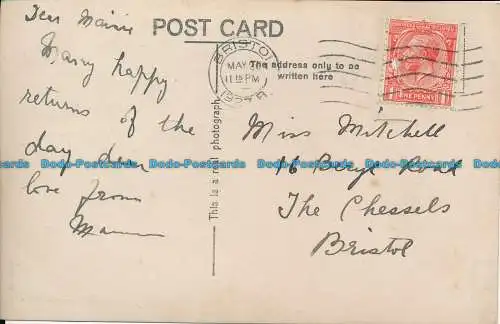 POST CARD
Dear Mamie
Many happy
returns of the
day dear
love from
The address only to be
written here
BRISTOL
MAY
11 15 PM
ONE PENNY
This is a real photograph.
Miss Mitchell
16 Beryl Road
The Chessels
Bristol
Dodo-Postcards Dodo-Postcards Dodo-Postcards Dodo-Postcards Dodo-Postcards